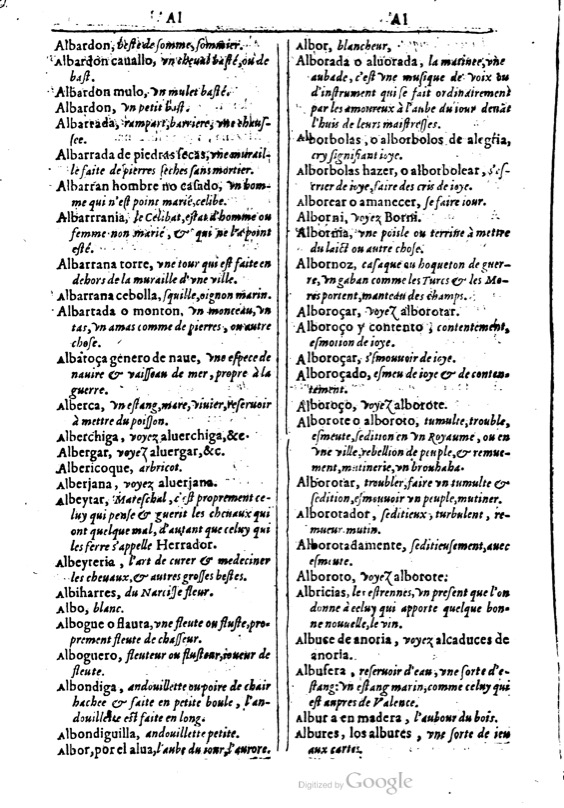 AL
Albardon, beste de somme, sommier.
Albardon cauallo, vn cheual basté, ou de
bast.
Albardon mulo, vn mulet basté.
Albardon, vn petit bast.
Albarrada, rampart, barriere, vne chaus-
sée.
Albarrada de piedras secas, vne murail-
le faite de pierres seches sans mortier.
Albarran hombre no casado, vn hom-
me qui n'est point marié, celibe.
Albarrania, le Celibat, estat d'homme ou
femme non marié, & qui ne l'a point
esté.
Albarrana torre, vne tour qui est faite en
dehors de la muraille d'vne ville.
Albarrana cebolla, squille, oignon marin.
Albartada o monton, vn monceau, vn
tas, vn amas comme de pierres, ou autre
chose.
Albatoça género de naue, vne espece de
nauire & vaisseau de mer, propre à la
guerre.
Alberca, vn estang, mare, viuier, reseruoir
à mettre du poisson.
Alberchiga, voyez aluerchiga, &c.
Albergar, voyez aluergar, &c.
Albericoque, arbricot.
Alberjana, voyez aluerjana.
Albeytar, Mareschal, c'est proprement ce-
luy qui pense & guerit les cheuaux qui
ont quelque mal, d'autant que celuy qui
les ferre s'appelle Herrador.
Albeyteria, l'art de curer & medeciner
les cheuaux, & autres grosses bestes.
Albiharres, du Narcisse fleur.
Albo, blanc.
Albogue o flauta, vne fleute ou fluste, pro-
prement fleute de chasseur.
Alboguero, fleuteur ou flusteur, ioueur de
fleute.
Albondiga, andouillette ou poire de chair
hachee & faite en petite boule, l'an-
douillette est faite en long.
Albondiguilla, andouillette petite.
Albor, por el alua, l'aube du iour, l'aurore.
AL
Albor, blancheur,
Alborada o aluorada, la matinee, vne
aubade, c'est vne musique de voix ou
d'instrument qui se fait ordinairement
par les amoureux à l'anbe du iour deuāt
l'huis de leurs maistresses.
Alborbolas, o alborbolos de alegria,
cry signifiant ioye.
Alborbolas hazer, o alborbolear, s'es-
crier de ioye, faire des cris de ioye.
Alborear o amanecer, se faire iour.
Alborni, voyez Borni.
Albornia, vne poisle ou terrine à mettre
du laict ou autre chose.
Albornoz, casaque au hoqueton de guer-
re, vn gaban comme les Turcs & les Mo-
res portent, manteau des champs.
Alboroçar, voyez alborotar.
Alboroço y contento, contentement,
esmotion de ioye.
Alboroçar, s'esmouuoir de ioye.
Alboroçado, esmeu de ioye & de conten-
tement.
Alboroço, voyez alborote.
Alborote o alboroto, tumulte, trouble,
esmeute, sedition en vn Royaume, ou en
vne ville, rebellion de peuple, & remue-
ment, mutinerie, vn brouhaha.
Alborotar, troubler, faire vn tumulte &
sedition, esmouuoir vn peuple, mutiner.
Alborotador, seditieux, turbulent, re-
mueur. mutin.
Alborotadamente, seditieusement, auec
esmeute.
Alboroto, voyez alborote.
Albricias, les estrennes, vn present que l'on
donne à celuy qui apporte quelque bon-
ne nouuelle, le vin.
Albuse de anoria, voyez alcaduces de
anoria.
Albufera, reseruoir d'eau, vne sorte d'e-
stang: vn estang marin, comme celuy qui
est aupres de Valence.
Albura en madera, l'aubour du bois.
Albures, los albures, vne sorte de ieu
aux cartes.
Digitized by Google